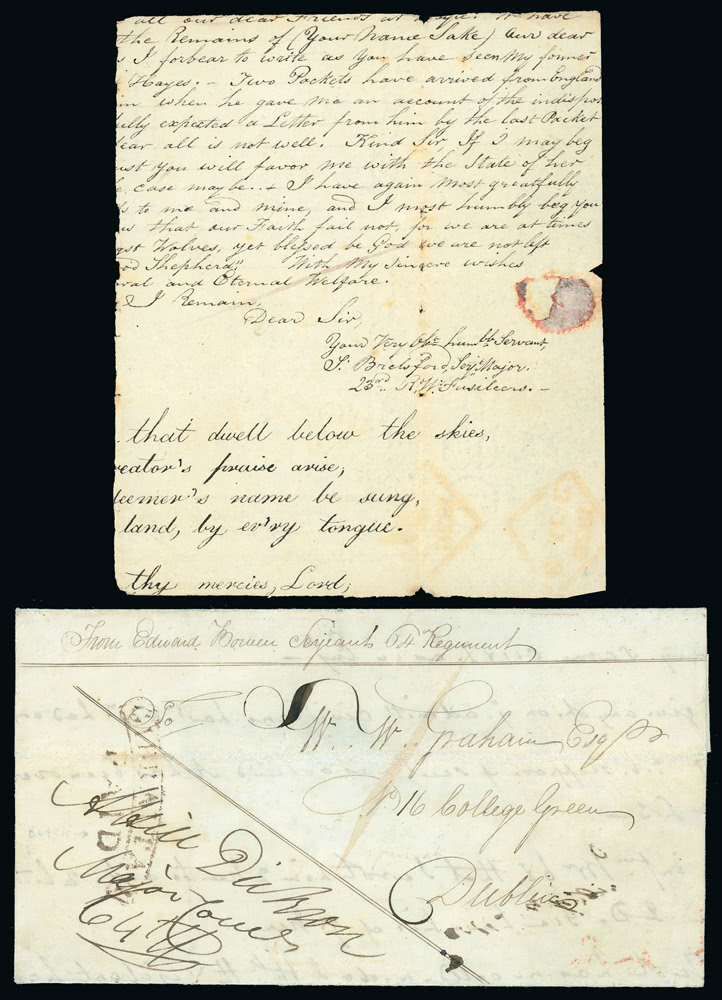 all our dear Friends at
the Remains of (Your Name Sake) Our dear
I forbear to write as You have Seen My former
Hayes. - Two Packets have arrived from England
when he gave me an account of the indispos
fully expected a Letter from him by the last Packet
fear all is not well. Kind Sir, If I may beg
ust You will favor Me with the State of her
case may be.. + I have again Most greatfully
to me and mine, and I most humbly beg You
us that our Faith fail not, for we are at times
gst Wolves, yet blessed be God we are not left
od Shepherd" With My Sincere wishes
and Eternal Welfare.
I Remain,
Dear Sir,
Your Very Obt. humble Servant,
S. Brelsford, Serjt. Major.
23rd R. W. Fusileers. -
that dwell below the skies,
reator's praise arise;
deemer's name be sung,
land, by ev'ry tongue.
thy mercies, Lord;
From Edward Bowen Serjeant 64 Regiment
W. W. Graham Esqr
No 16 College Green
Dublin
Dickson
Major Com
64th